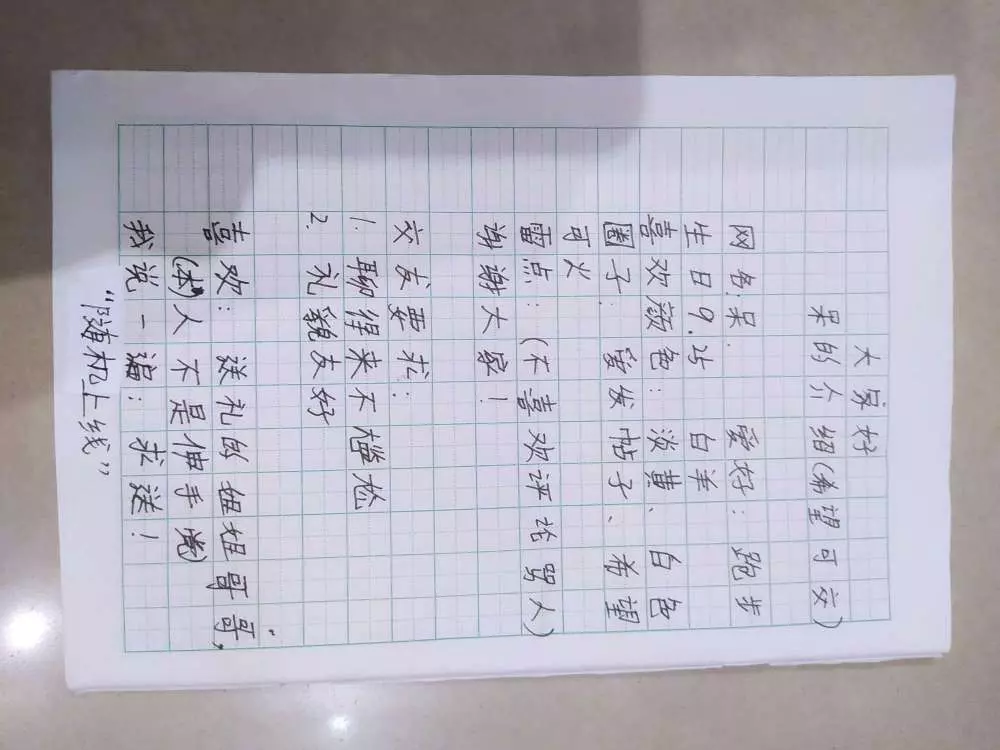 大家好
呆的介绍(希望可交)
网名:呆. 爱好:跑步
生日9.25 白羊
喜欢颜色:淡黄、白色
圈子: 爱发帖子、希望
可火
雷点:(不喜欢评论骂人)
谢谢大家!
交友要求:
1. 聊得来不尴尬
2. 礼貌友好
喜欢:送礼的姐姐哥哥,
(本人不是伸手党)
我说一遍:求送!
“随机上线”